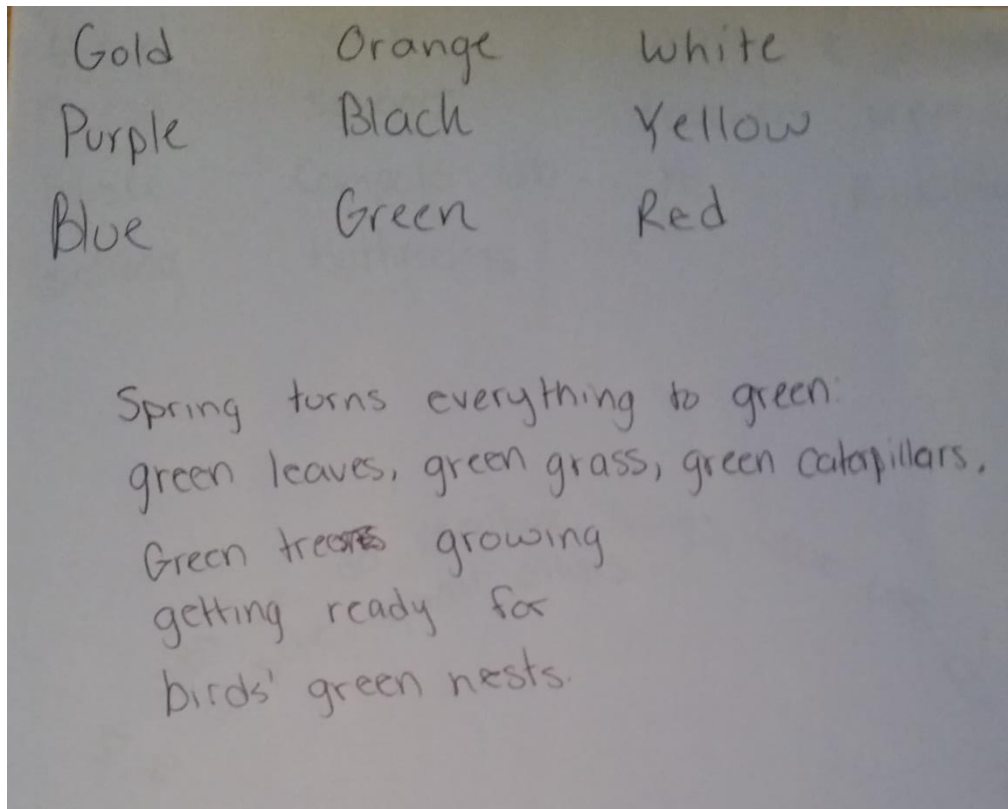 Gold Orange White
Purple Black Yellow
Blue Green Red
Spring turns everything to green:
green leaves, green grass, green caterpillars.
Green trees growing
getting ready for
birds' green nests.